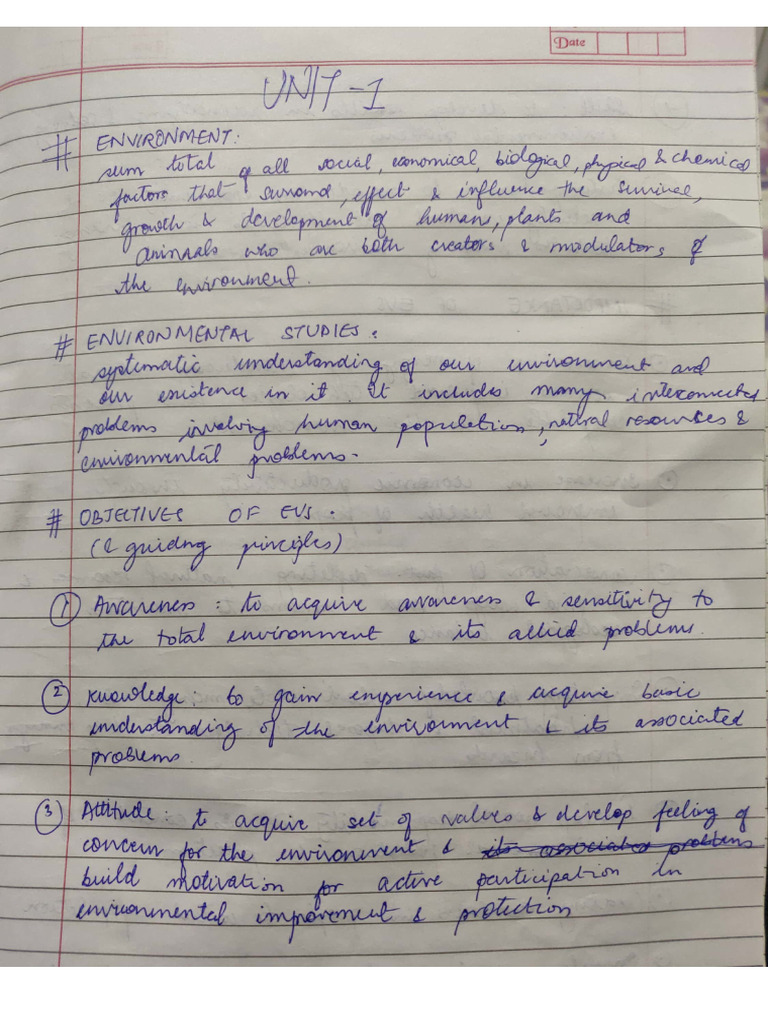 Date
UNIT-1
# ENVIRONMENT:
sum total of all social, economical, biological, physical & chemical
factors that surround, effect & influence the survival,
growth & development of humans, plants and
animals who are both creators & modulators of
the environment.
# ENVIRONMENTAL STUDIES:
systematic understanding of our environment and
our existence in it. It includes many interconnected
problems involving human population, natural resources &
environmental problems.
# OBJECTIVES OF EVS.
(& guiding principles)
① Awareness: to acquire awareness & sensitivity to
the total environment & its allied problems.
② Knowledge: to gain experience & acquire basic
understanding of the environment & its associated
problems.
③ Attitude: to acquire set of values & develop feeling of
concern for the environment & its associated problems
build motivation for active participation in
environmental improvement & protection